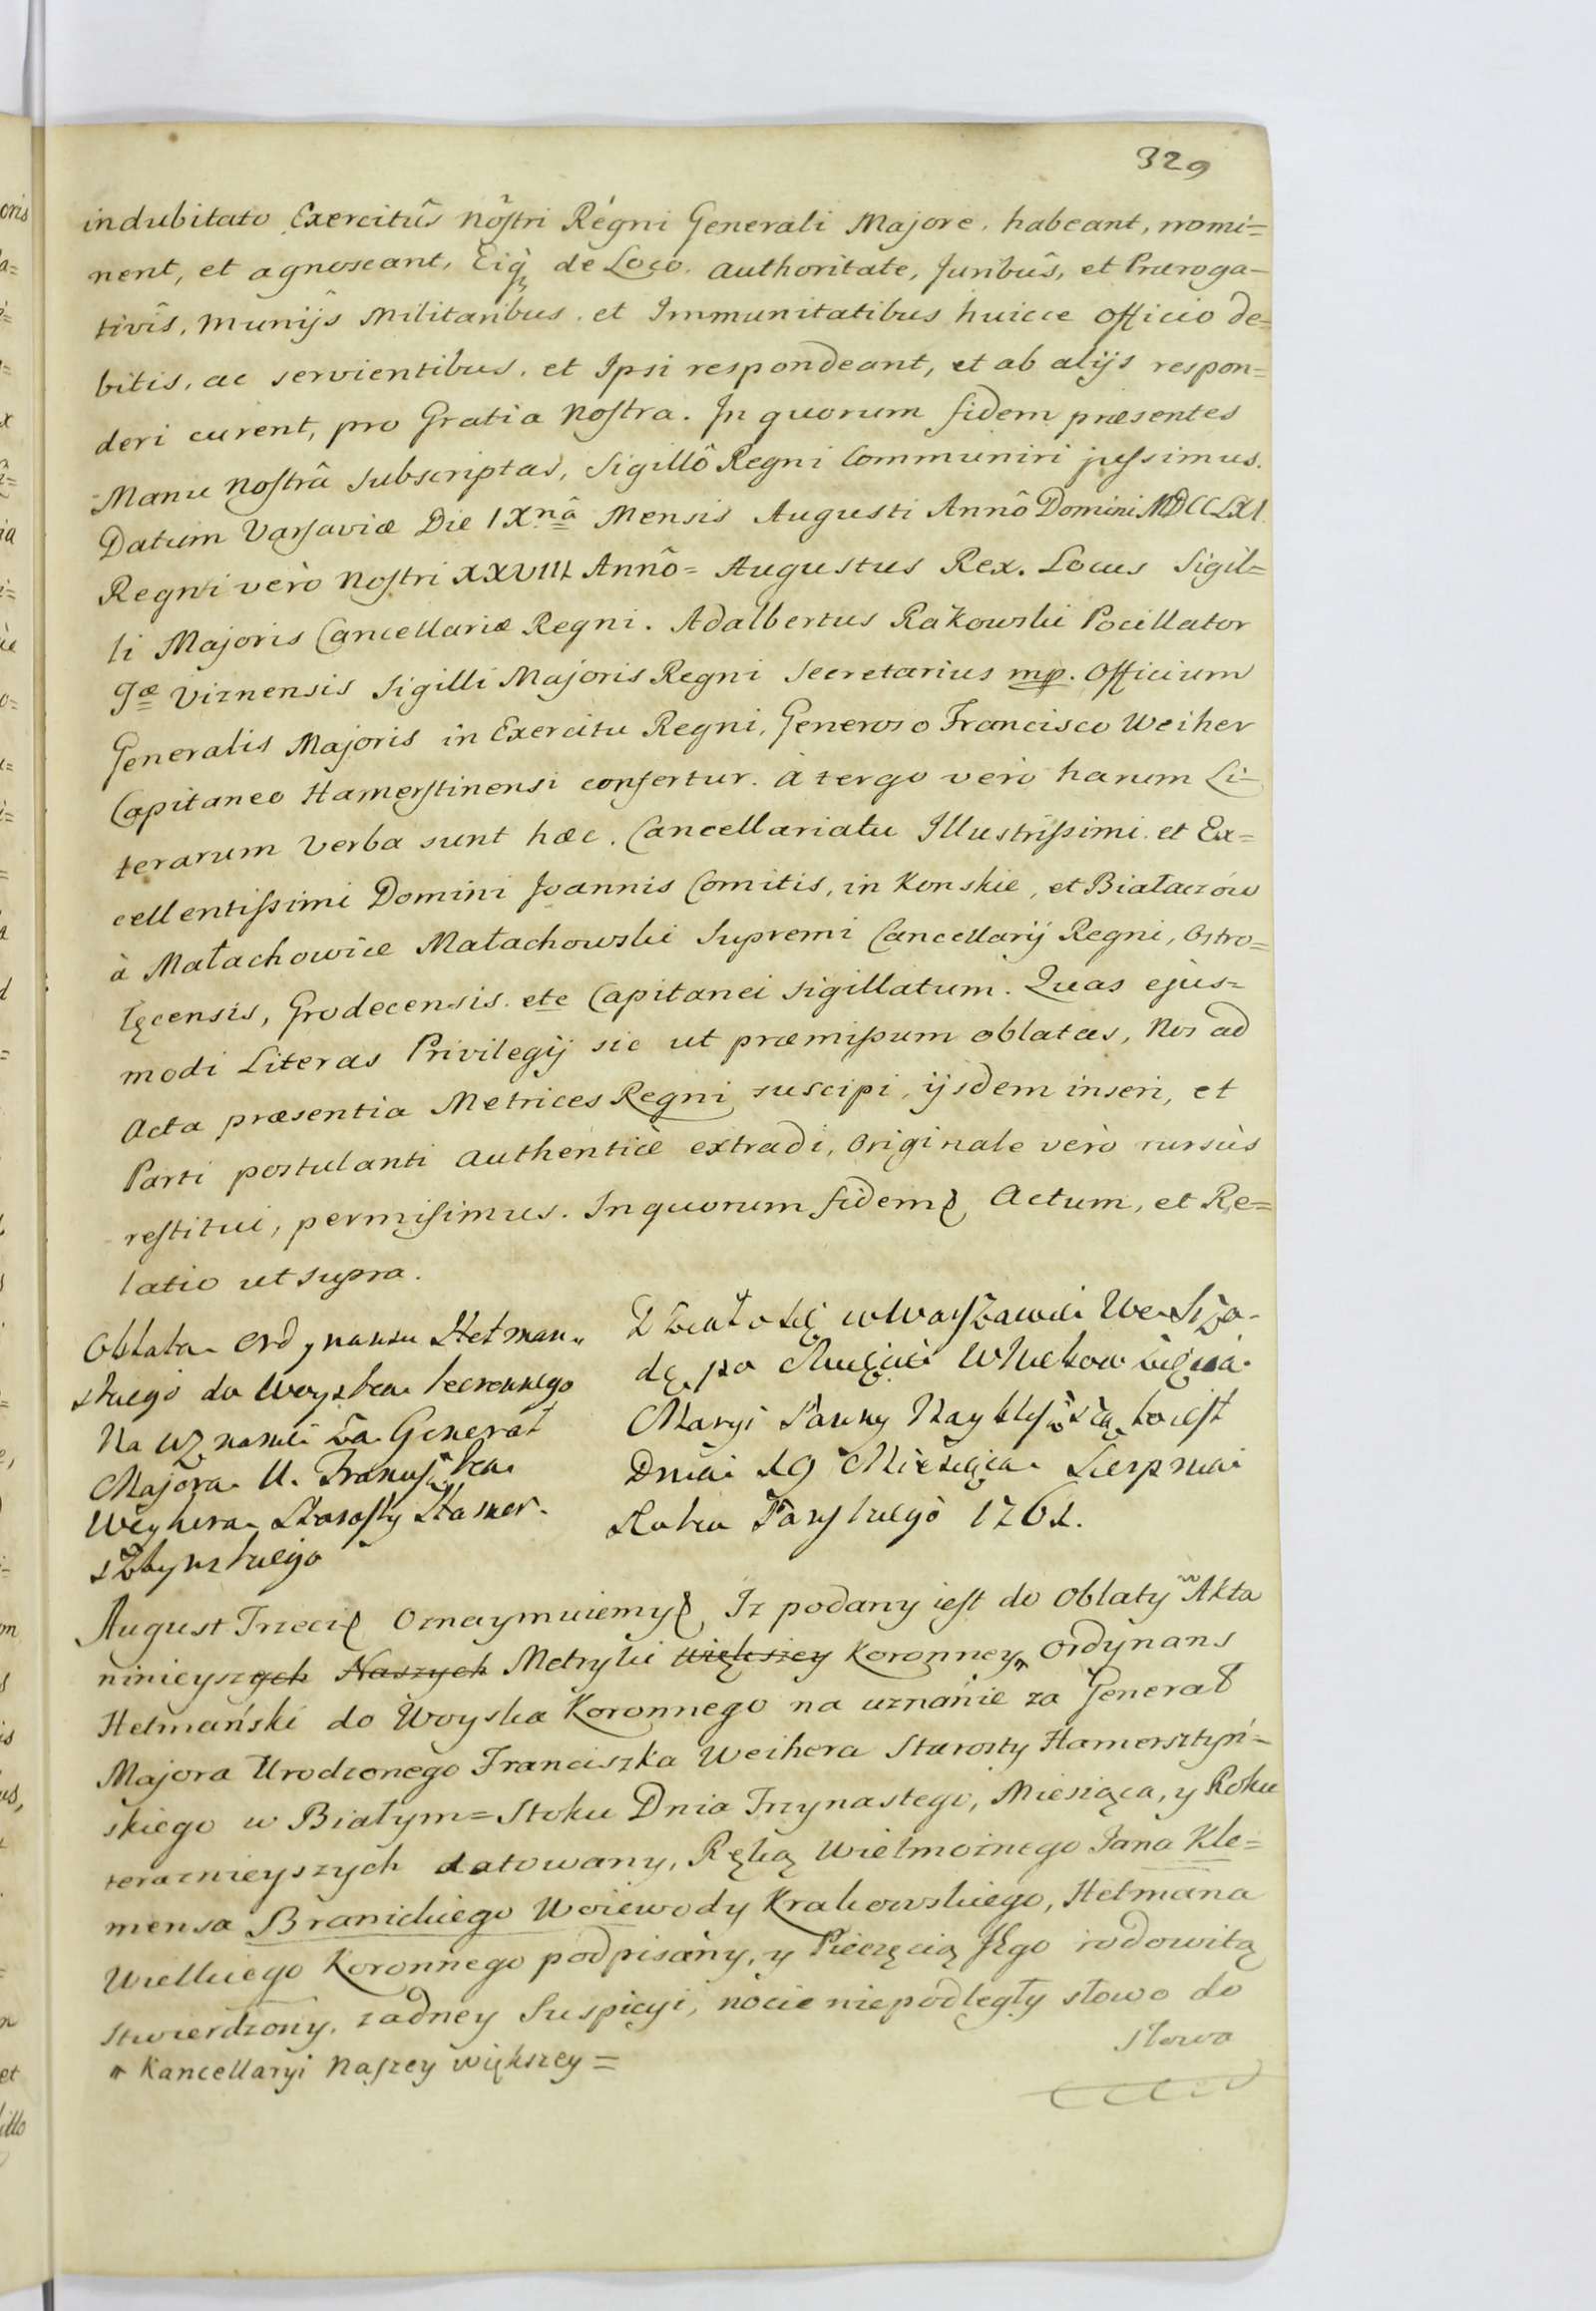 329
indubitato Exercitûs nôstri Régni Generali Majore, habeant, nomi=
nent, et agnoscant, Eiq̃ꝫ de Loco, authoritate, Juribûs, et Præroga-
tivîs, Munijs Militaribus, et Immunitatibus huicce officio de=
bitis, ac servientibus, et Ipsi respondeant, et ab alijs respon=
deri curent, pro Gratia Nostra. In quorum fidem præsentes
Manu Nostrâ subscriptas, Sigillô Regni Communiri jussimus.
Datum Varsaviæ Die IXnâ Mensis Augusti Annô Domini MDCCLXI.
Regni verò Nostri XXVIII Annô= Augustus Rex. Locus Sigil=
li Majoris Cancellariæ Regni. Adalbertus Rakowski Pocillator
Tæ Viznensis Sigilli Majoris Regni Secretarius mp. Officium
Generalis Majoris in Exercitu Regni, Generoso Francisco Weiher
Capitaneo Hamerstinensi confertur. à tergo verò harum Li-
terarum Verba sunt hæc. Cancellariatu Illustrissimi et Ex=
cellentissimi Domini Joannis Comitis, in Konskie, et Białaczów
à Małachowice Małachowski Supremi Cancellarij Regni, Ostro=
łęcensis, Grodecensis etc Capitanei sigillatum. Quas ejus=
modi Literas Privilegij sic ut præmissum oblatas, Nos ad
Acta præsentia Metrices Regni suscipi, ijsdem inseri, et
Parti postulanti authenticè extradi, Originale verò rursùs
restitui, permisimus. In quorum fidem Actum, et Re=
latio ut supra.
Oblata Ordynansu Hetman-
skiego do Woyska koronnego
Na uznanie za Generał
Majora U. Franciszka
Weyhera Starosty Hamer-
sztynskiego
Działo się w Warszawie We Srzo-
dę po Święcie W Niebowzięcia
Maryi Panny Nayblisszą to iest
Dnia 19 Miesiąca Sierpnia
Roku Pańskiego 1761.
August Trzeci Oznaymuiemy Iz podany iest do Oblaty w Akta
ninieyszych Naszych Metryki większey Koronney Ordynans
Hetmański do Woyska Koronnego na uznanie za Generał
Majora Urodzonego Franciszka Weihera Starosty Hamersztyń-
skiego w Białym=Stoku Dnia Trzynastego, Miesiąca, y Roku
teraznieyszych datowany, Ręką Wielmoznego Jana Kle=
mensa Branickiego Woiewody Krakowskiego, Hetmana
Wielkiego Koronnego podpisany, y Pieczęcią JEgo rodowitą
stwierdzony, zadney Suspicyi, nocie niepodległy słowo do
słowa
Kancellaryi Naszey większey =